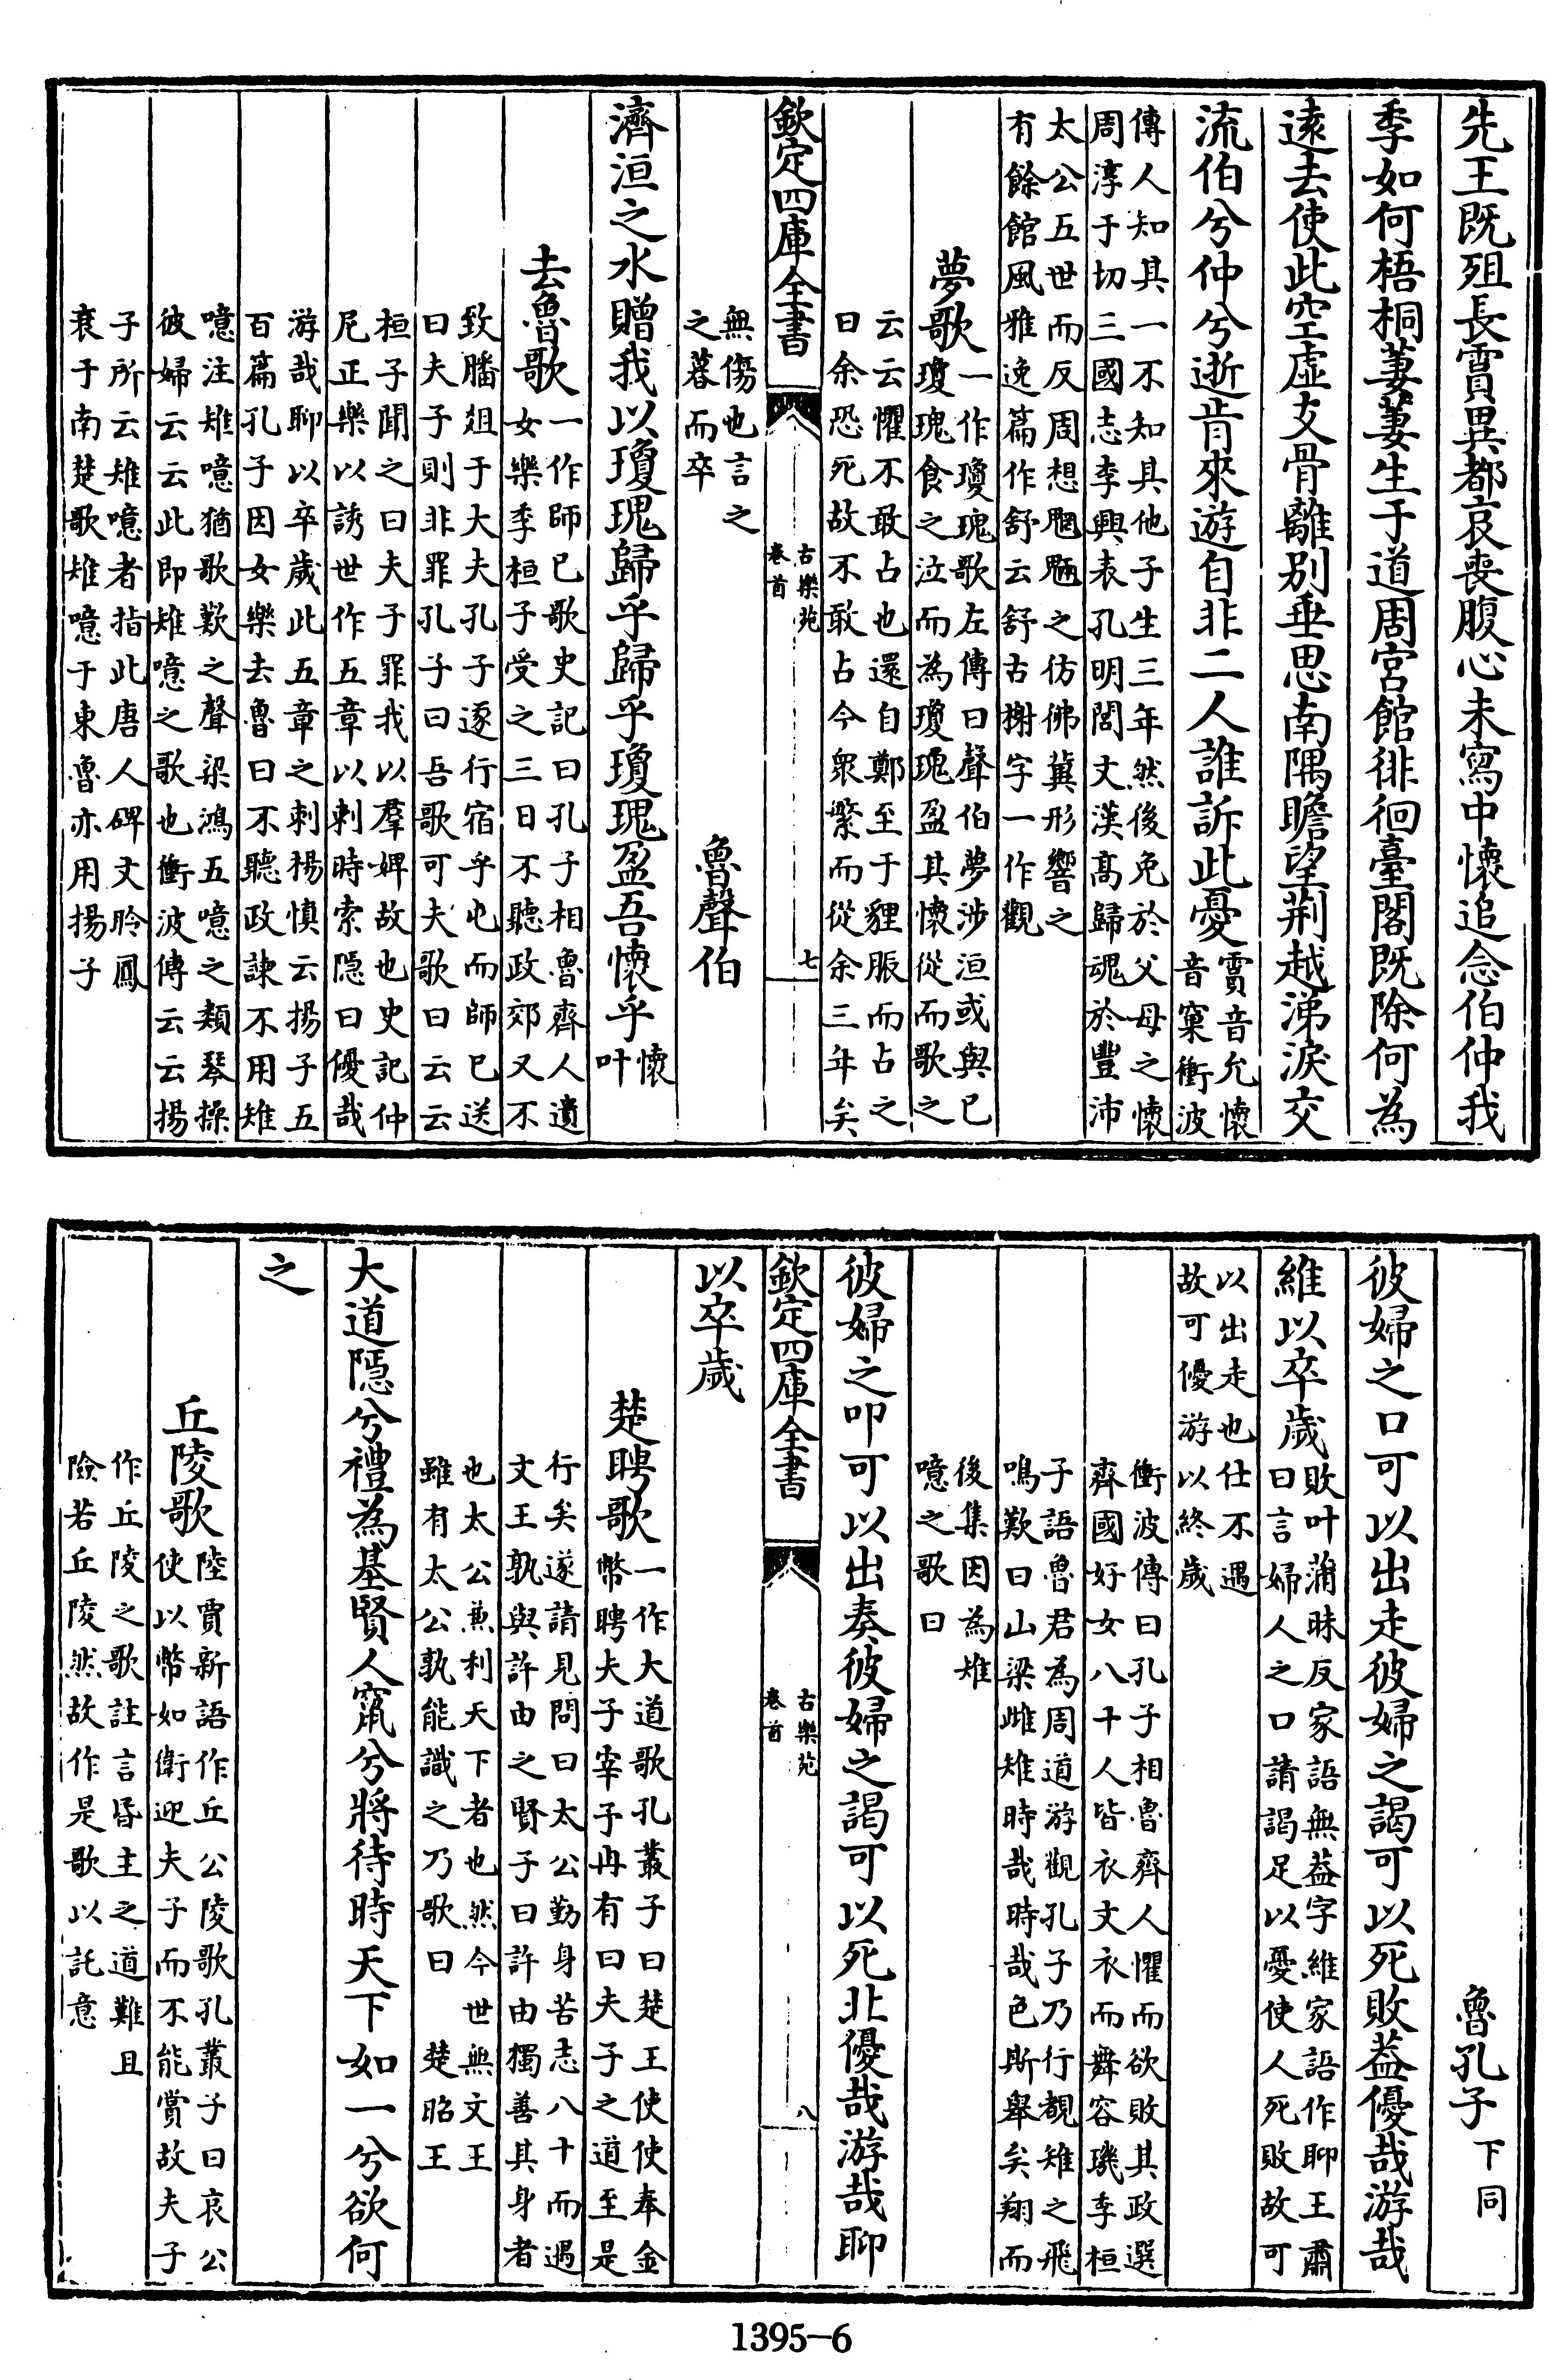 先王既殂長霣異都哀喪腹心未寫中懷追念伯仲我
季如何梧桐萋萋生于道周宮館徘徊臺閣既除何為
逺去使此空虛支骨離别垂思南隅瞻望荆越涕淚交
流伯兮仲兮逝肯來游自非二人誰訴此憂霣音允懷
音窠衝波
傳人知其一不知其他子生三年然後免於父母之懷
周淳于切三國志李興表孔明閭文漢髙歸魂於豐沛
太公五世而反周想魍魎之彷彿冀形響之
有餘館風雅逸篇作舒云舒古榭字一作觀
夢歌一作瓊瑰歌左傳曰聲伯夢涉洹或與已
瓊瑰食之泣而為瓊瑰盈其懷從而歌之
云云懼不敢占也還自鄭至于貍脤而占之
曰余恐死故不敢占今衆繁而從余三年矣
欽定四庫全書
古樂苑
卷首
七
無傷也言之
之暮而卒
魯聲伯
濟洹之水贈我以瓊瑰歸乎歸乎瓊瑰盈吾懷乎懷
叶
去魯歌一作師已歌史記曰孔子相魯齊人遺
女樂季桓子受之三日不聽政郊又不
致膰俎于大夫孔子逐行宿乎屯而師已送
曰夫子則非罪孔子曰吾歌可夫歌曰云云
桓子聞之曰夫子罪我以羣婢故也史記仲
尼正樂以誘世作五章以刺時索隠曰優哉
游哉聊以卒歲此五章之刺楊慎云揚子五
百篇孔子因女樂去魯曰不聽政諫不用雉
噫注雉噫猶歌歎之聲梁鴻五噫之類琴操
彼婦云云此即雉噫之歌也衝波傳云云揚
子所云雉噫者指此唐人碑文昤鳳
衰于南楚歌雉噫于東魯亦用揚子
魯孔子下同
彼婦之口可以出走彼婦之謁可以死敗葢優哉游哉
維以卒歲敗叶蒲昧反家語無葢字維家語作聊王肅
曰言婦人之口請謁足以憂使人死敗故可
以出走也仕不遇
故可優游以終歲
衝波傳曰孔子相魯齊人懼而欲敗其政選
齊國好女八十人皆衣文衣而舞容璣季桓
子語魯君為周道游觀孔子乃行覩雉之飛
鳴歎曰山梁雌雉時哉時哉色斯舉矣翔而
後集因為雉
噫之歌曰
彼婦之叩可以出奏彼婦之謁可以死北優哉游哉聊
欽定四庫全書
古樂苑
卷首
八
以卒歲
楚聘歌一作大道歌孔叢子曰楚王使使奉金
幣聘夫子宰子冉有曰夫子之道至是
行矣遂請見問曰太公勤身苦志八十而遇
文王孰與許由之賢子曰許由獨善其身者
也太公兼利天下者也然今世無文王
雖有太公孰能識之乃歌曰　楚昭王
大道隠兮禮為基賢人竄兮將待時天下如一兮欲何
之
丘陵歌陸賈新語作丘公陵歌孔叢子曰哀公
使以幣如衛迎夫子而不能賞故夫子
作丘陵之歌註言昬主之道難且
險若丘陵然故作是歌以託意
1395-6